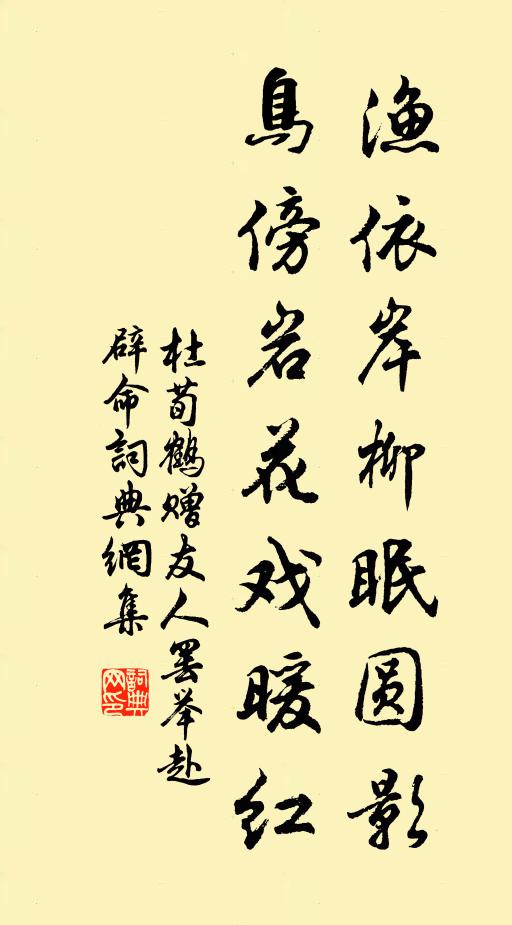 渔依岸柳眠圆影
鸟傍岩花戏暖红
杜荀鹤赠友人罢举赴
辟命詞典網集
詞典
网印